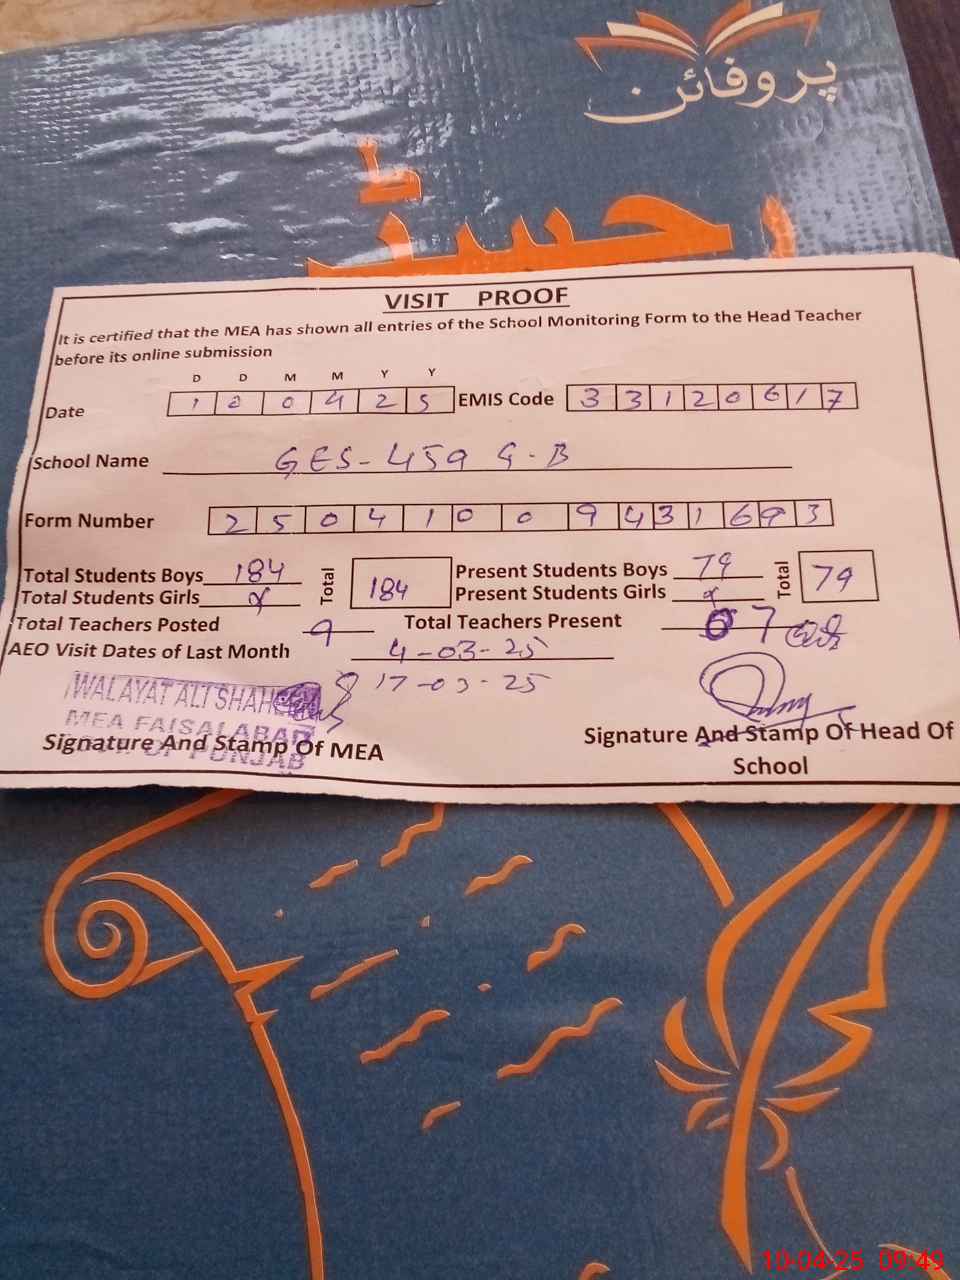 پروفائن
رجسٹر
VISIT PROOF
It is certified that the MEA has shown all entries of the School Monitoring Form to the Head Teacher
before its online submission
D D M M Y Y
Date 1 0 0 4 2 5 EMIS Code 3 3 1 2 0 6 1 7
School Name GES-459 G-B
Form Number 2 5 0 4 1 0 0 9 4 3 1 6 9 3
Total Students Boys 184 Total 184 Present Students Boys 79 Total 79
Total Students Girls Present Students Girls
Total Teachers Posted 9 Total Teachers Present 7
AEO Visit Dates of Last Month 4-03-25
17-03-25
WALAYAT ALI SHAH
MEA FAISALABAD
OF PUNJAB
Signature And Stamp Of MEA Signature And Stamp Of Head Of
School
10-04-25 09:49